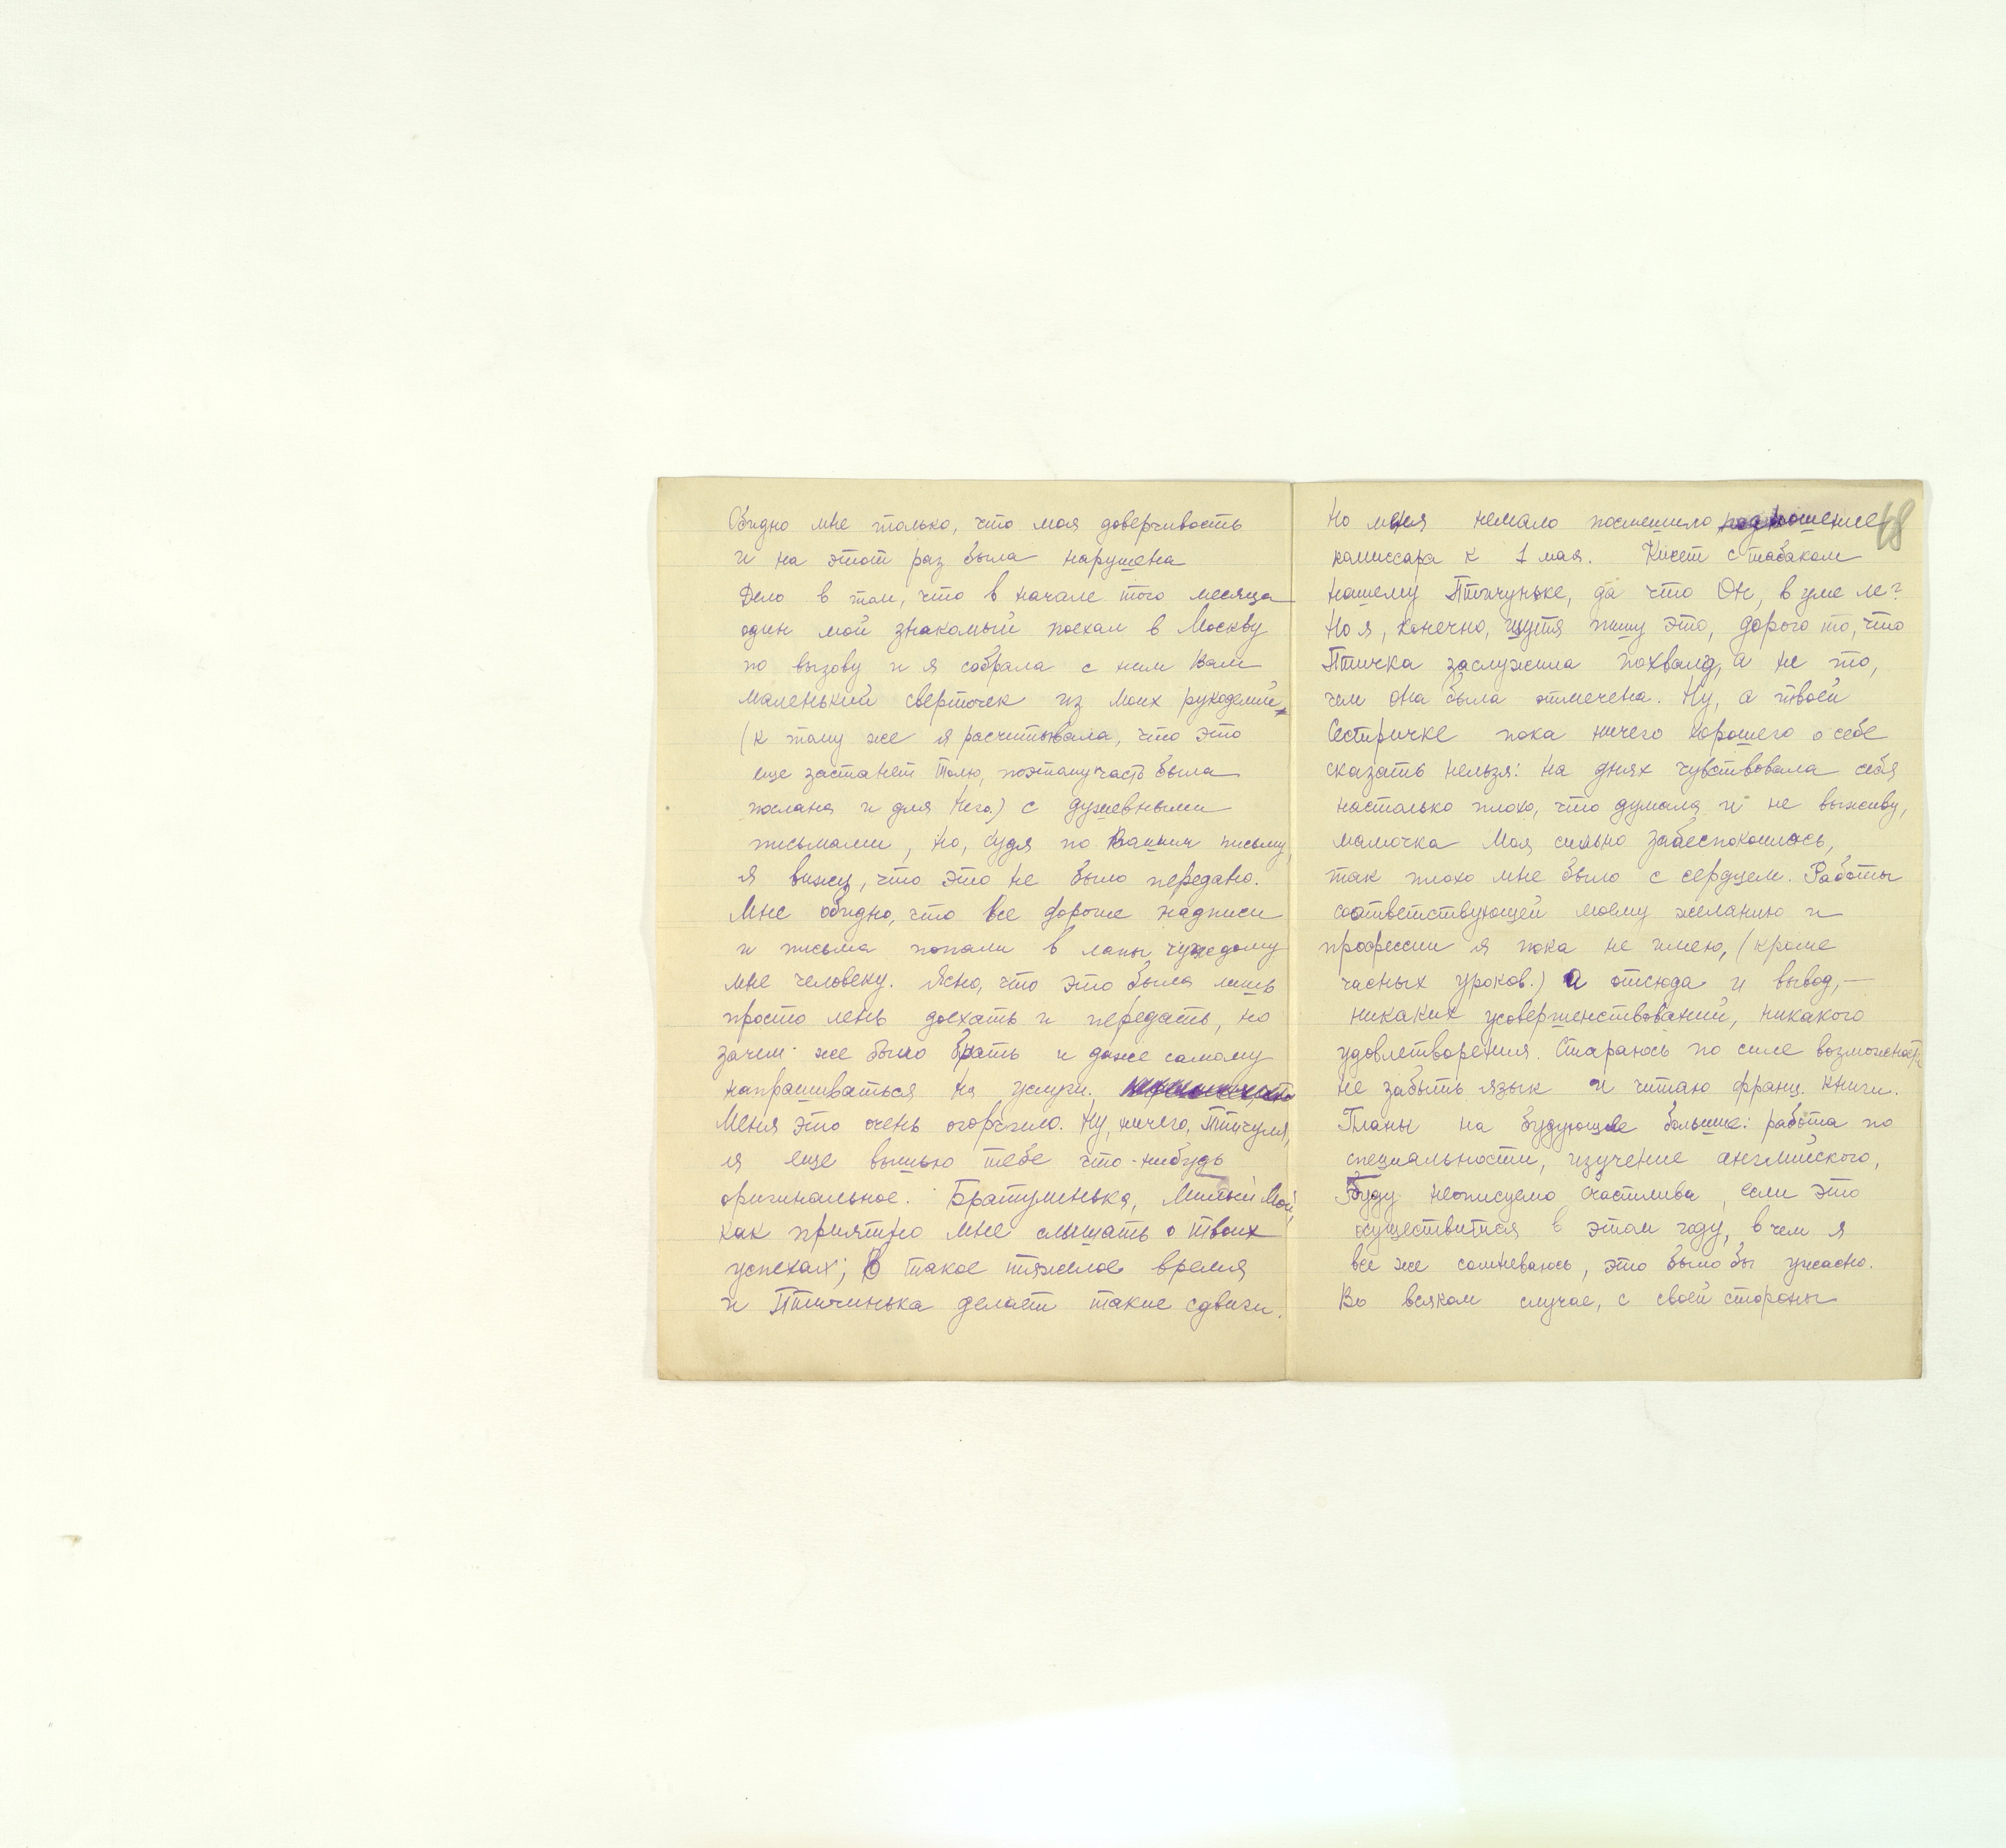 Обидно мне только, что моя доверчивость
и на этот раз была нарушена
Дело в том, что в начале того месяца
один мой знакомый поехал в Москву
по вызову и я собрала с ним Вам
маленький сверточек из моих рукоделий
(к тому же я расчитывала, что это
еще застанет Толю, поэтому часть была
послана и для Него) с душевными
письмами, но, судя по Вашим письму,
я вижу, что это не было передано.
Мне обидно, что все дорогие надписи
и письма попали в лапы чуждому
мне человеку. Ясно, что это была лишь
просто лень доехать и передать, но
зачем же было брать и даже самому
напрашиваться на услуги.
Меня это очень огорчило. Ну, ничего, Птичуля,
я еще вышью тебе что-нибудь
оригинальное. Братушинька, Милый Мой,
как приятно мне слышать о твоих
успехах; В такое тяжелое время
и Птичинька делает такие сдвиги.
Но меня немало посмешило подношение
комиссара к 1 мая. Кисет с табаком
нашему Птичуньке, да что Он, в уме ле?
Но я, конечно, шутя пишу это, дорого то, что
Птичка заслужила похвалу, а не то,
чем она была отмечена. Ну, а твоей
Сестричке пока ничего хорошего о себе
сказать нельзя: на днях чувствовала себя
настолько плохо, что думала и не выживу,
мамочка Моя сильно забеспокоилась,
так плохо мне было с сердцем. Работы
соответствующей моему желанию и
профессии я пока не имею, (кроме
часных уроков.) а отсюда и вывод, —
никаких усовершенствований, никакого
удовлетворения. Стараюсь по силе возможности
не забыть язык и читаю франц. книги.
Планы на будующее большие: работа по
специальности, изучение английского,
Буду неописуемо счастлива, если это
осуществится в этом году, в чем я
все же сомневаюсь, это было бы ужасно.
Во всяком случае, с своей стороны
48